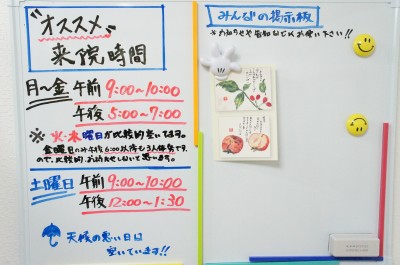 "オススメ"
来院時間
月〜金 午前 9:00〜10:00
午後 5:00〜7:00
※火・木曜日が比較的空いてます。
金曜日のみ午後6:00以降も3人体勢ですので、比較的お待たせしないと思います。
土曜日 午前 9:00〜10:00
午後 12:00〜1:30
天候の悪い日は
空いています!!
みんなの掲示板
*お知らせや告知などにお使い下さい!!